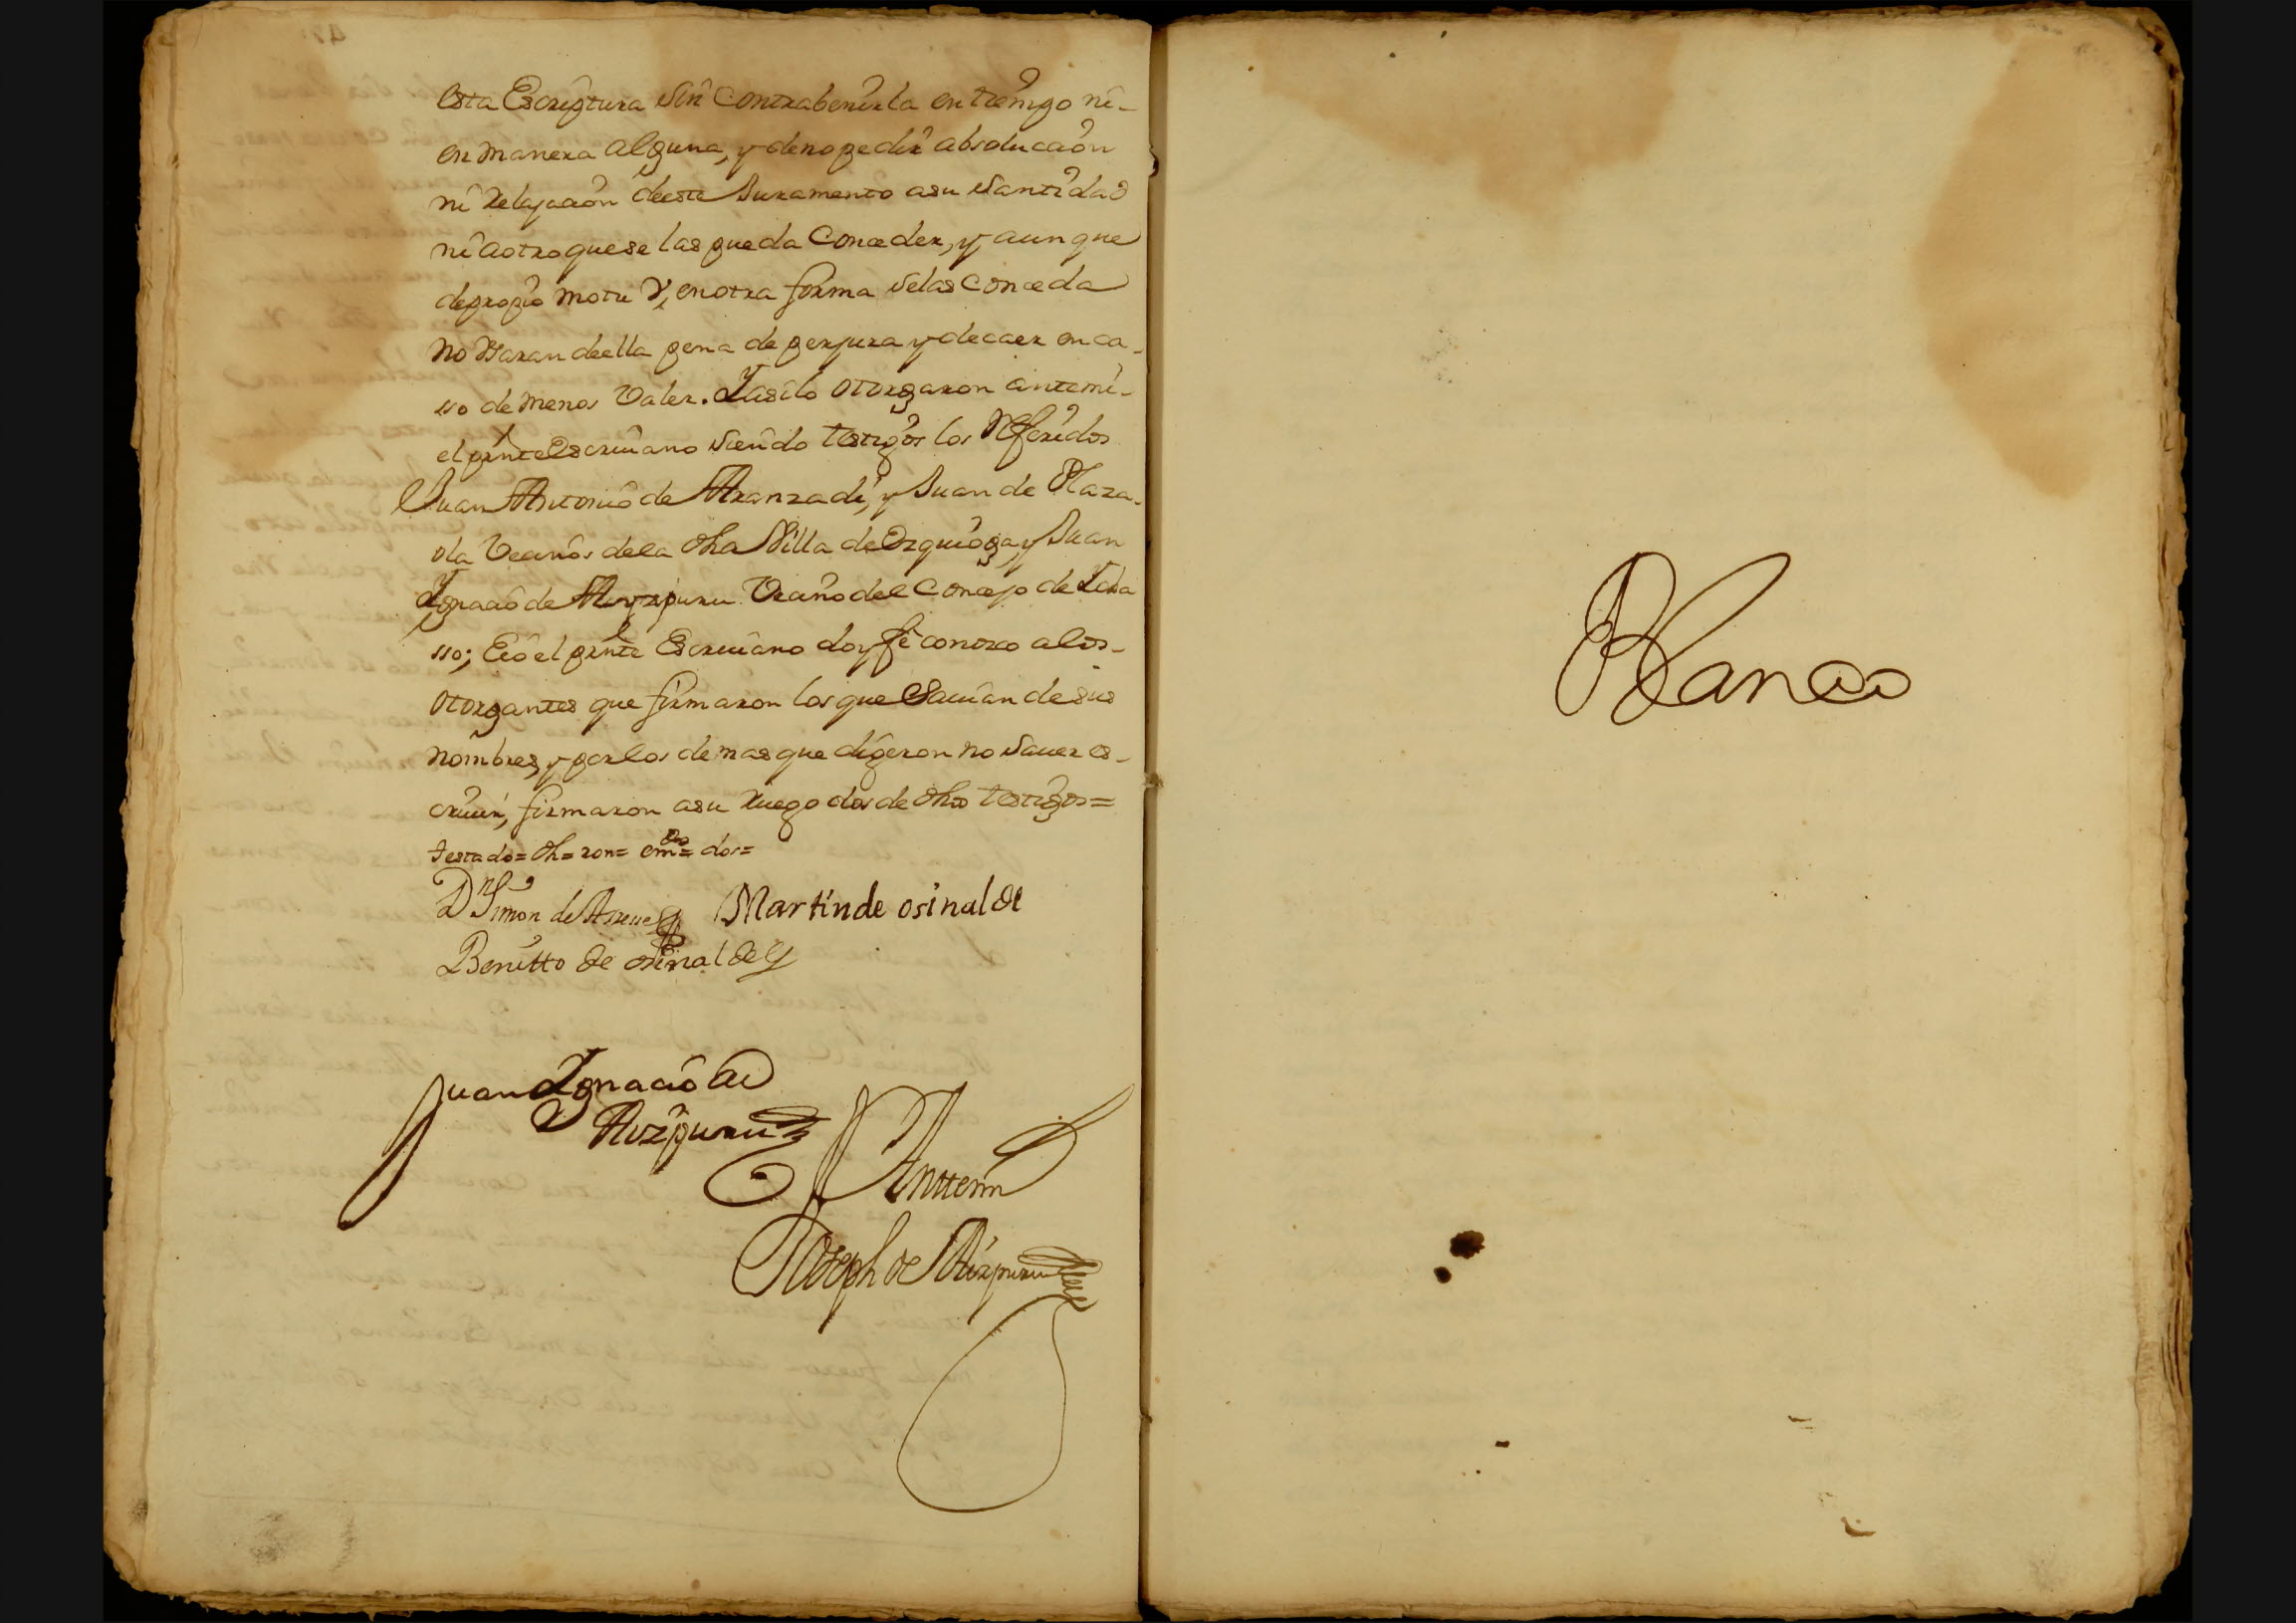 esta Escriptura sin Contrabenirla en tiempo ni-
en manera alguna, y de no pedir absolucion
ni Relajacion de este Juramento a su Santidad
ni a otro que se las pueda Conceder, y aunque
de propio motu Y, en otra forma se las Conceda
no Usaran de ella pena de perjura y de caer en ca-
sso de menos Valer. Y asi lo otorgaron ante mi-
el pressnte Escriuano siendo testigos los Referidos
Juan Antonio de Aranzadi, y Juan de Olaza-
ola Vecinos de la dha Villa de Ezquioga, y Juan
Ygnacio de Aizpuru Vecino del Concejo de
sso; E io el prnte Escriuano doy fe conozco a los-
otorgantes que firmaron los que Sauian de sus
nombres, y por los demas que digeron no Sauer es-
criuir, firmaron a su Ruego dos de dhos testigos=
testado= dh= ron= emdo= dos=
Dn Simon de Martin de osinalde
Benitto de osinalde
Juan Ygnacio de
Aizpuru
Antte mi
Joseph de Aizpuru
Blanco